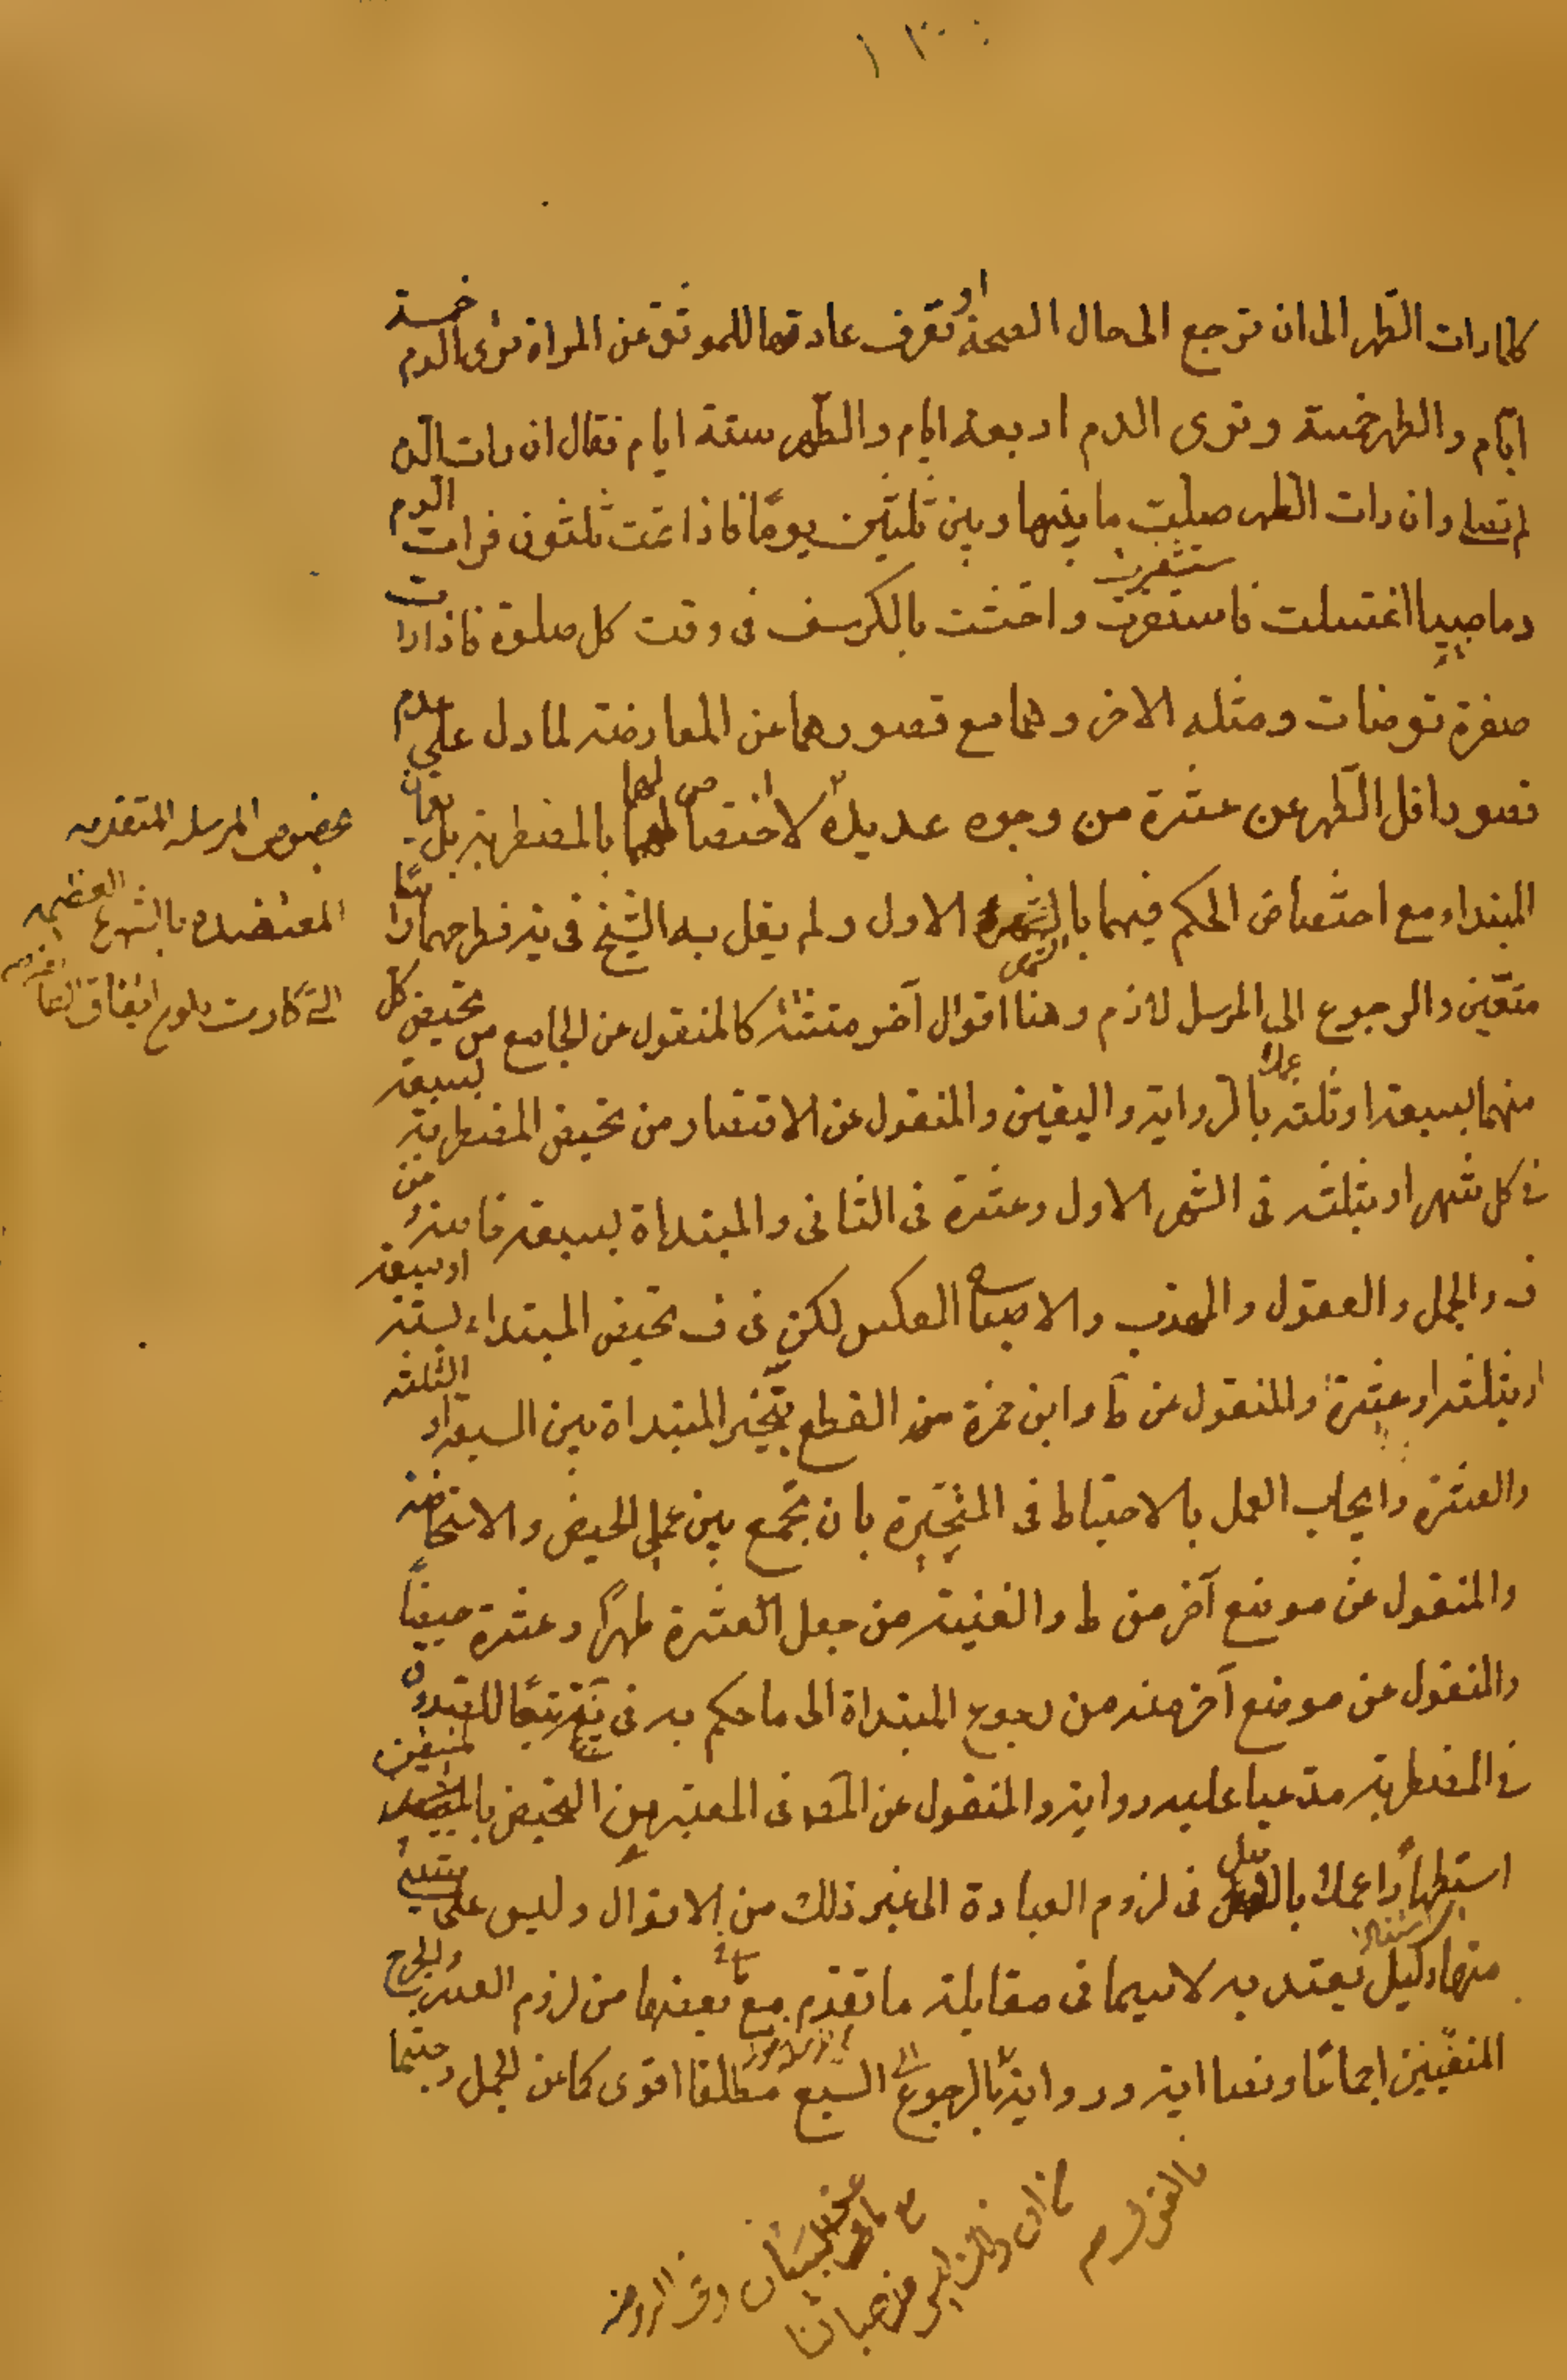 كلما رات الطهر الى ان ترجع الى حال الصحة او تعرف عادتها للموثق عن المراة ترى الدم خمسة
ايّام والطهر خمسة وترى الدم اربعة ايام والطّهر ستة ايام فقال ان رات الدم
لم تصل وان رات الطهر صلت ما بينها وبين ثلثين يومًا فاذا تمت ثلثون فرات الدم
دما صبيبا اغتسلت واستثفرت واحتشت بالكرسف فى وقت كل صلوة فاذا رات
صفرة توضات ومثله الاخر وهما مع قصورهما عن المعارضة لما دل على عدم
قصور اقل الطّهر عن عشرة من وجوه عديدة لا اختصاص لهما بالمضطربة بل يعمان
المبتداء مع اختصاص الحكم فيهما بالشهر الاول ولم يقل به الشيخ فى فطرحهما راسًا
متعّين والرجوع الى المرسل لازم وهنا اقوال آخر منتشرة كالمنقول عن الجامع من تحيض كل
منهما بسبعة او ثلثة عملا بالرواية واليقين والمنقول عن الاقتصار من تحيض المضطربة بسبعة
فى كل شهر او بثلثة فى الشهر الاول وعشرة فى الثانى والمبتداة بسبعة خاصة وعن
ف والجمل والعقول والمهذب والاصباح العكس لكن فى ف تحيض المبتداء بستة او سبعة
او بثلثة او عشرة والمنقول عن ط وابن حمزة من القطع بتخير المبتداة بين السبعة او الثلثة
والعشرة وايجاب العمل بالاحتياط فى المتحيّرة بان تجمع بين عملى الحيض والاستحاضة
والمنقول عن موضع آخر من ط والغنية من جعل العشرة طهرًا وعشرة حيضًا
والمنقول عن موضع آخر منه من رجوع المبتداة الى ما حكم به فى
فى المضطربة مدعيا عليه رواية والمنقول عن المص فى المعتبر من التحيض بالمتيقن
استظهارًا عملا بالاصل فى لزوم العبادة الى غير ذلك من الاقوال وليس على شيئ
منها دليل يعتد به لا سيما فى مقابلة ما تقدم مع ما فى بعضها من لزوم العسر والحرج
المنفيّين اجماعًا ونصا اية ورواية بالرجوع الى السبع مطلقا اقوى كما عن الجمل
بخصوص المرسلة المتقدمة
المعتضدة بالشهرة العظيمة
التى كادت بلوغ اتفاق